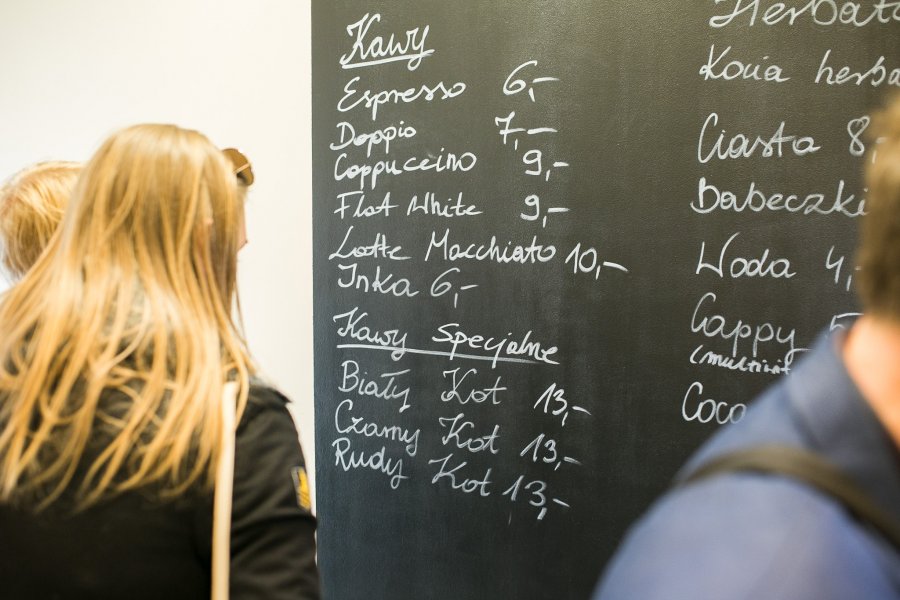 Kawy
Espresso 6,-
Doppio 7,-
Cappuccino 9,-
Flat White 9,-
Latte Macchiato 10,-
Inka 6,-
Kawy Specjalne
Biały Kot 13,-
Czarny Kot 13,-
Rudy Kot 13,-
Ciasta 8,
Babeczki
Woda 4,
Cappy 5